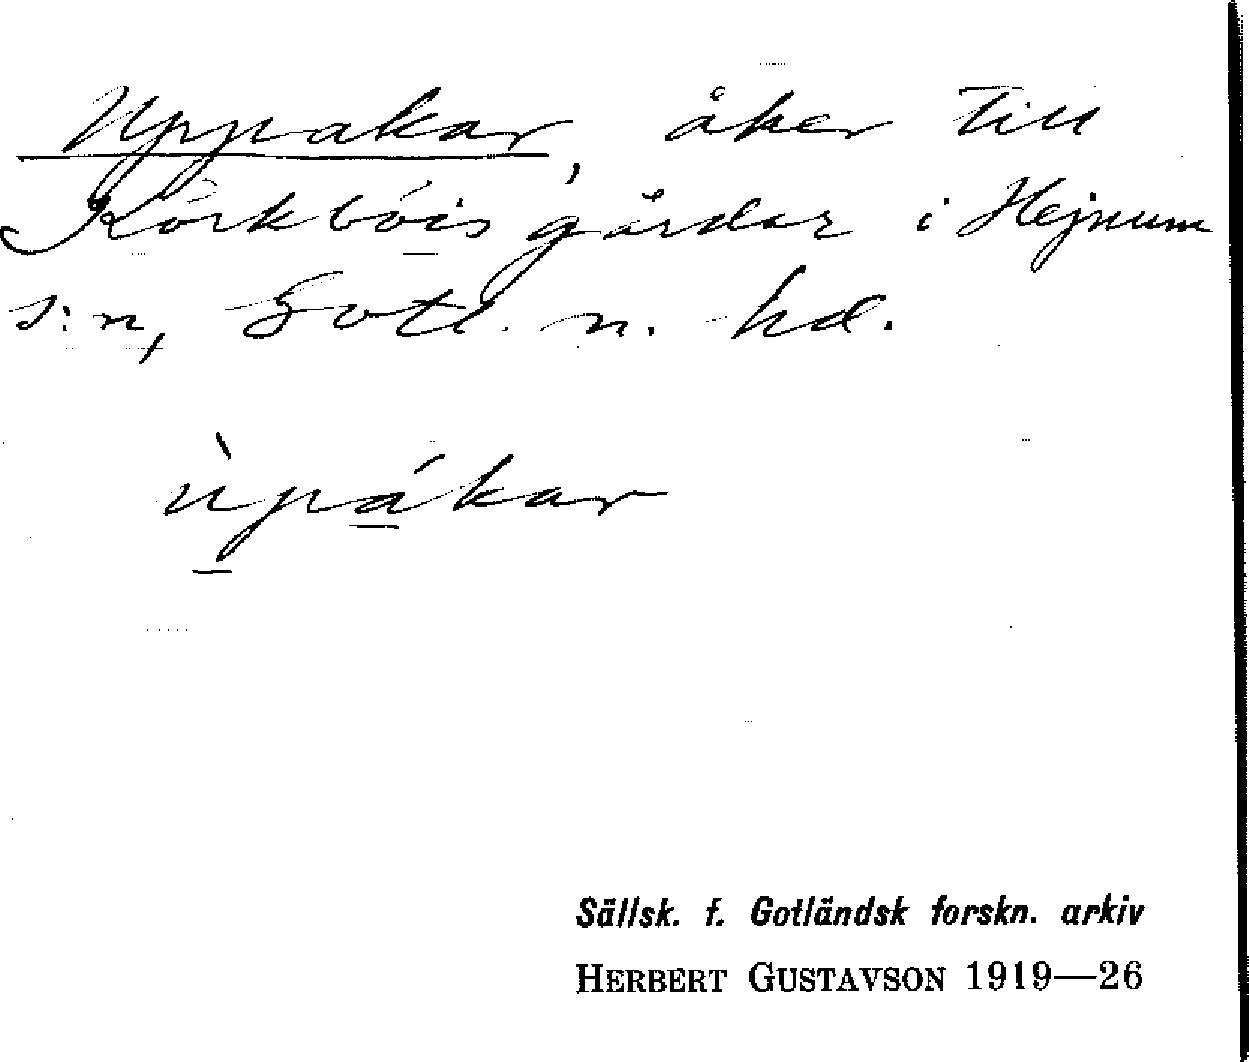 Uppakar, åker till
Körkbóis gårdar i Hejnum
s:n, Gotl. n. hd.
ùpákar
Sällsk. f. Gotländsk forskn. arkiv
HERBERT GUSTAVSON 1919—26